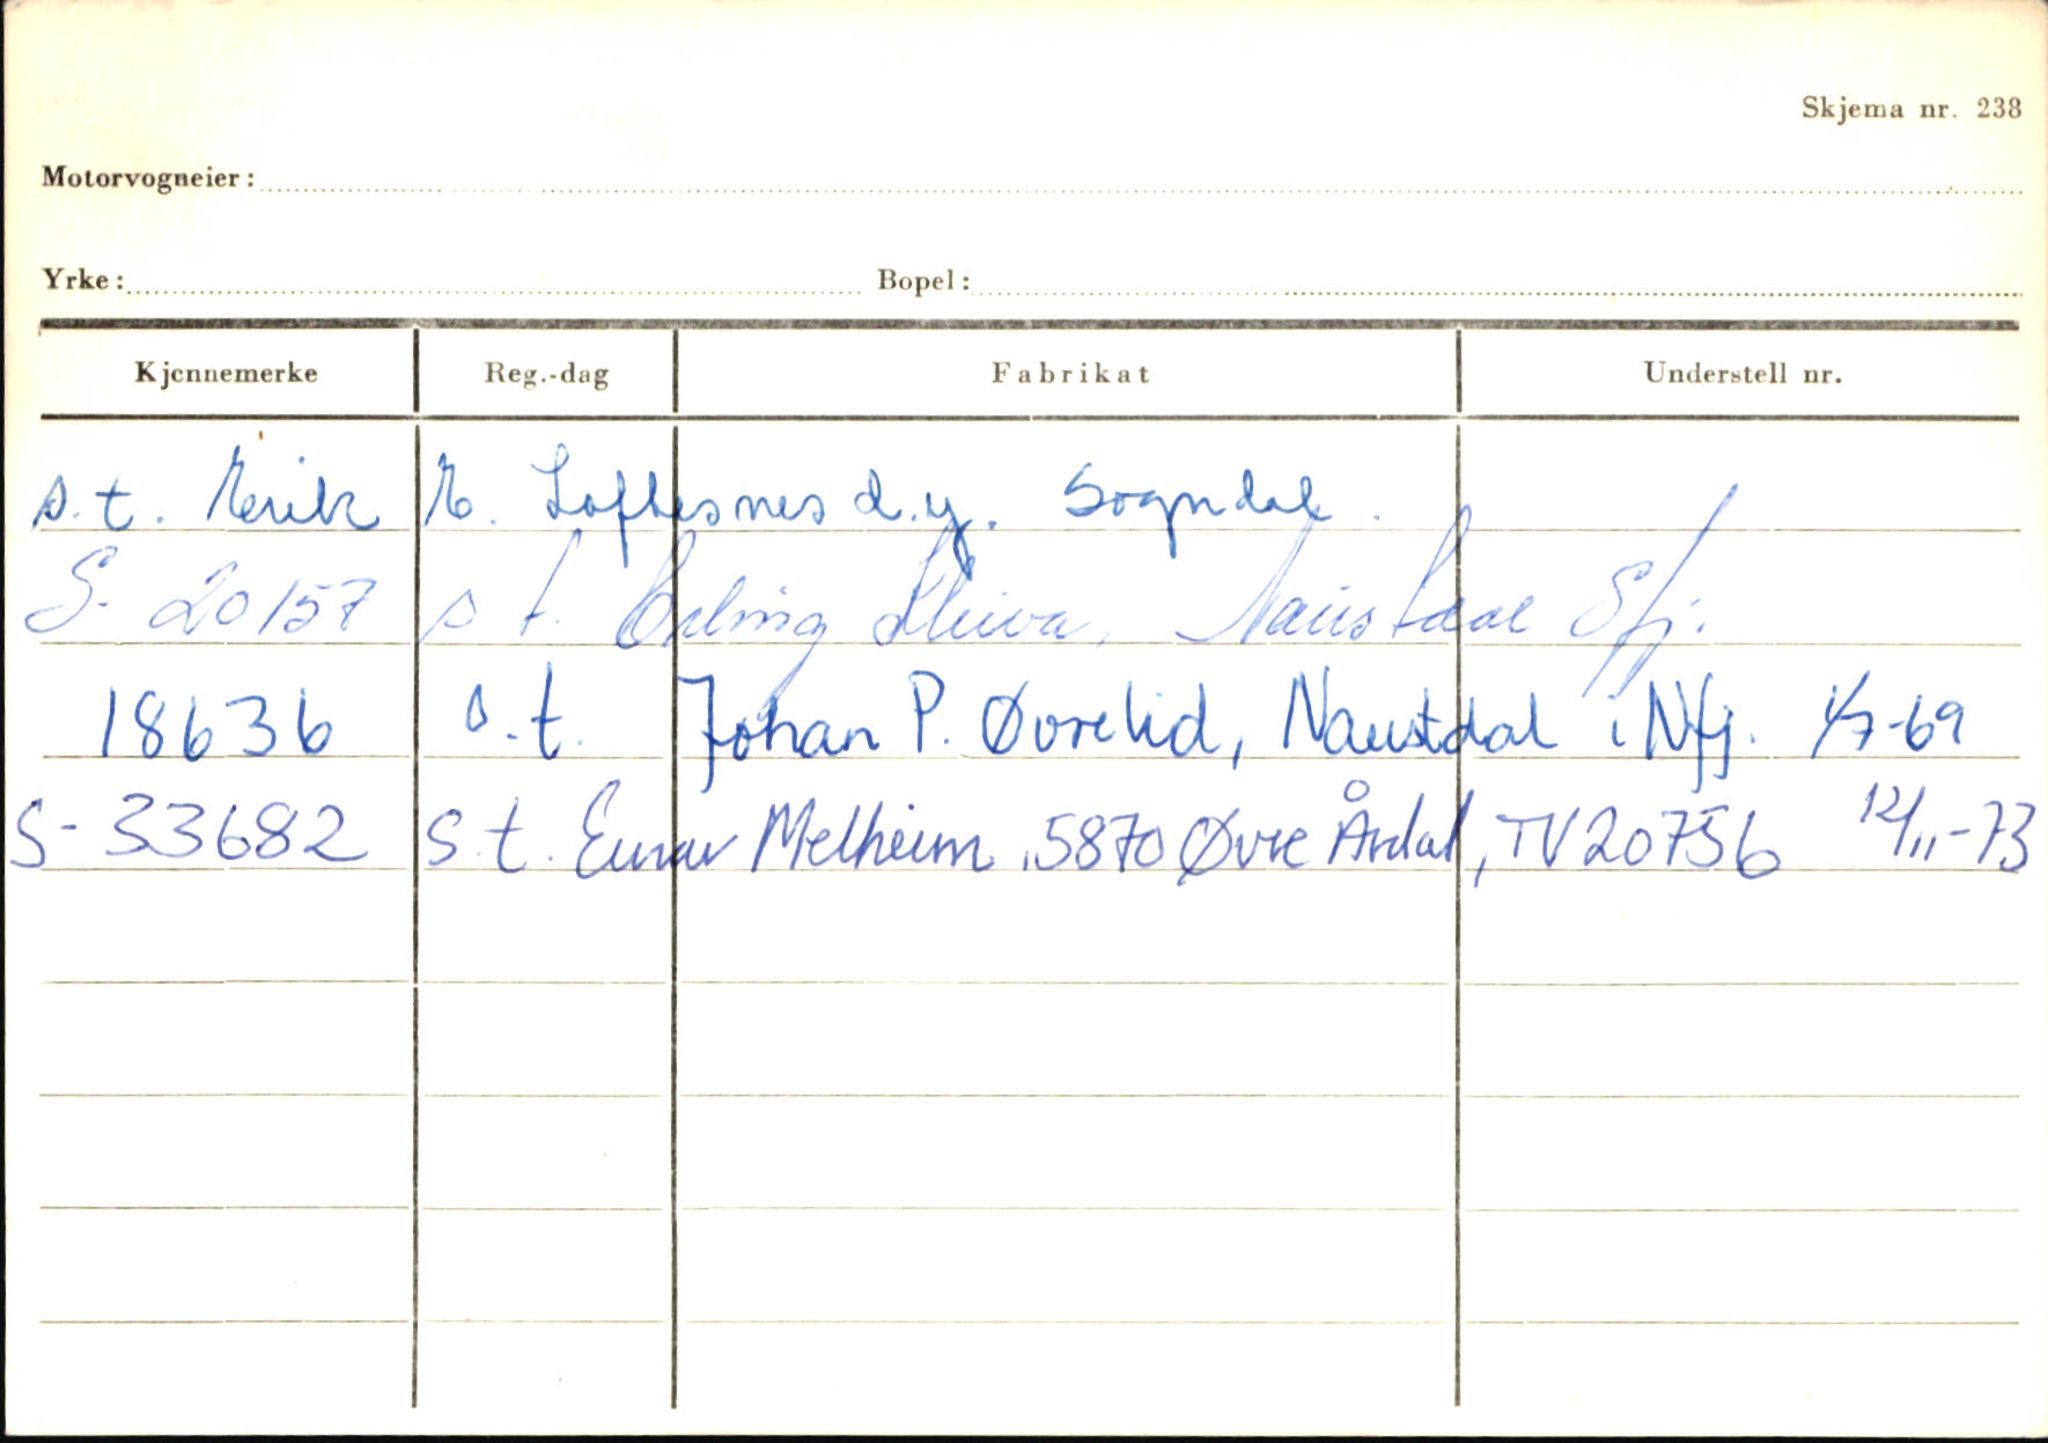 Skjema nr. 238
Motorvogneier:
Yrke: Bopel:
Kjennemerke Reg.-dag Fabrikat Understell nr.
s.t. Eerik E. Loftesnes d.y. Sogndal.
S- 20157 s t. Erling Kleiva, Naustdal Sfj.
18636 s.t. Johan P. Øvrelid, Naustdal i Nfj. 1/7-69
S- 33682 s.t. Einar Melheim, 5870 Øvre Årdal, TV20756 12/11-73